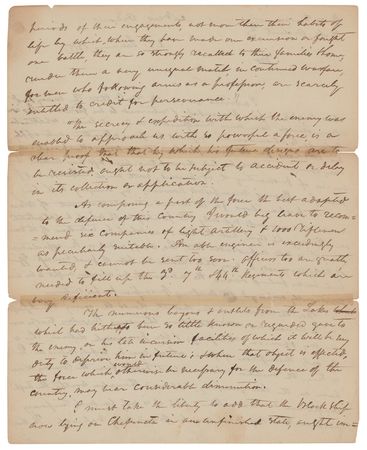 periods of their engagements, not more than their habits of
life by which when they have made one excursion or fought
one battle, they are so strongly recalled to their families & homes,
render them a very unequal match, in continued warfare,
for men who following arms as a profession, are scarcely
entitled to credit for perseverance.
The secrecy & expedition with which the enemy was
enabled to approach us with so powerful a force, is a
clear proof that that by which his future designs are to
be resisted, ought not to be subject to accident or delay
in its collection or application.
As composing a part of the force the best adapted
to the defence of this Country I would beg leave to recom-
mend six companies of light artillery & 1000 Riflemen
as peculiarly suitable. An able engineer is exceedingly
wanted, & cannot be sent too soon. Officers too are greatly
needed to fill up the 3d. 7th & 44th Regiments which are
very deficient.
The numerous bayous & outlets from the Lakes
which had hitherto been so little known or regarded gave to
the enemy, on his late incursion facilities of which it will be my
duty to deprive him in future; & when that object is effected,
the force which would otherwise be necessary for the defence of the
country, may bear considerable diminution.
I must take the liberty to add that the block ship
now lying on Chefuncte in an unfinished state, ought im-